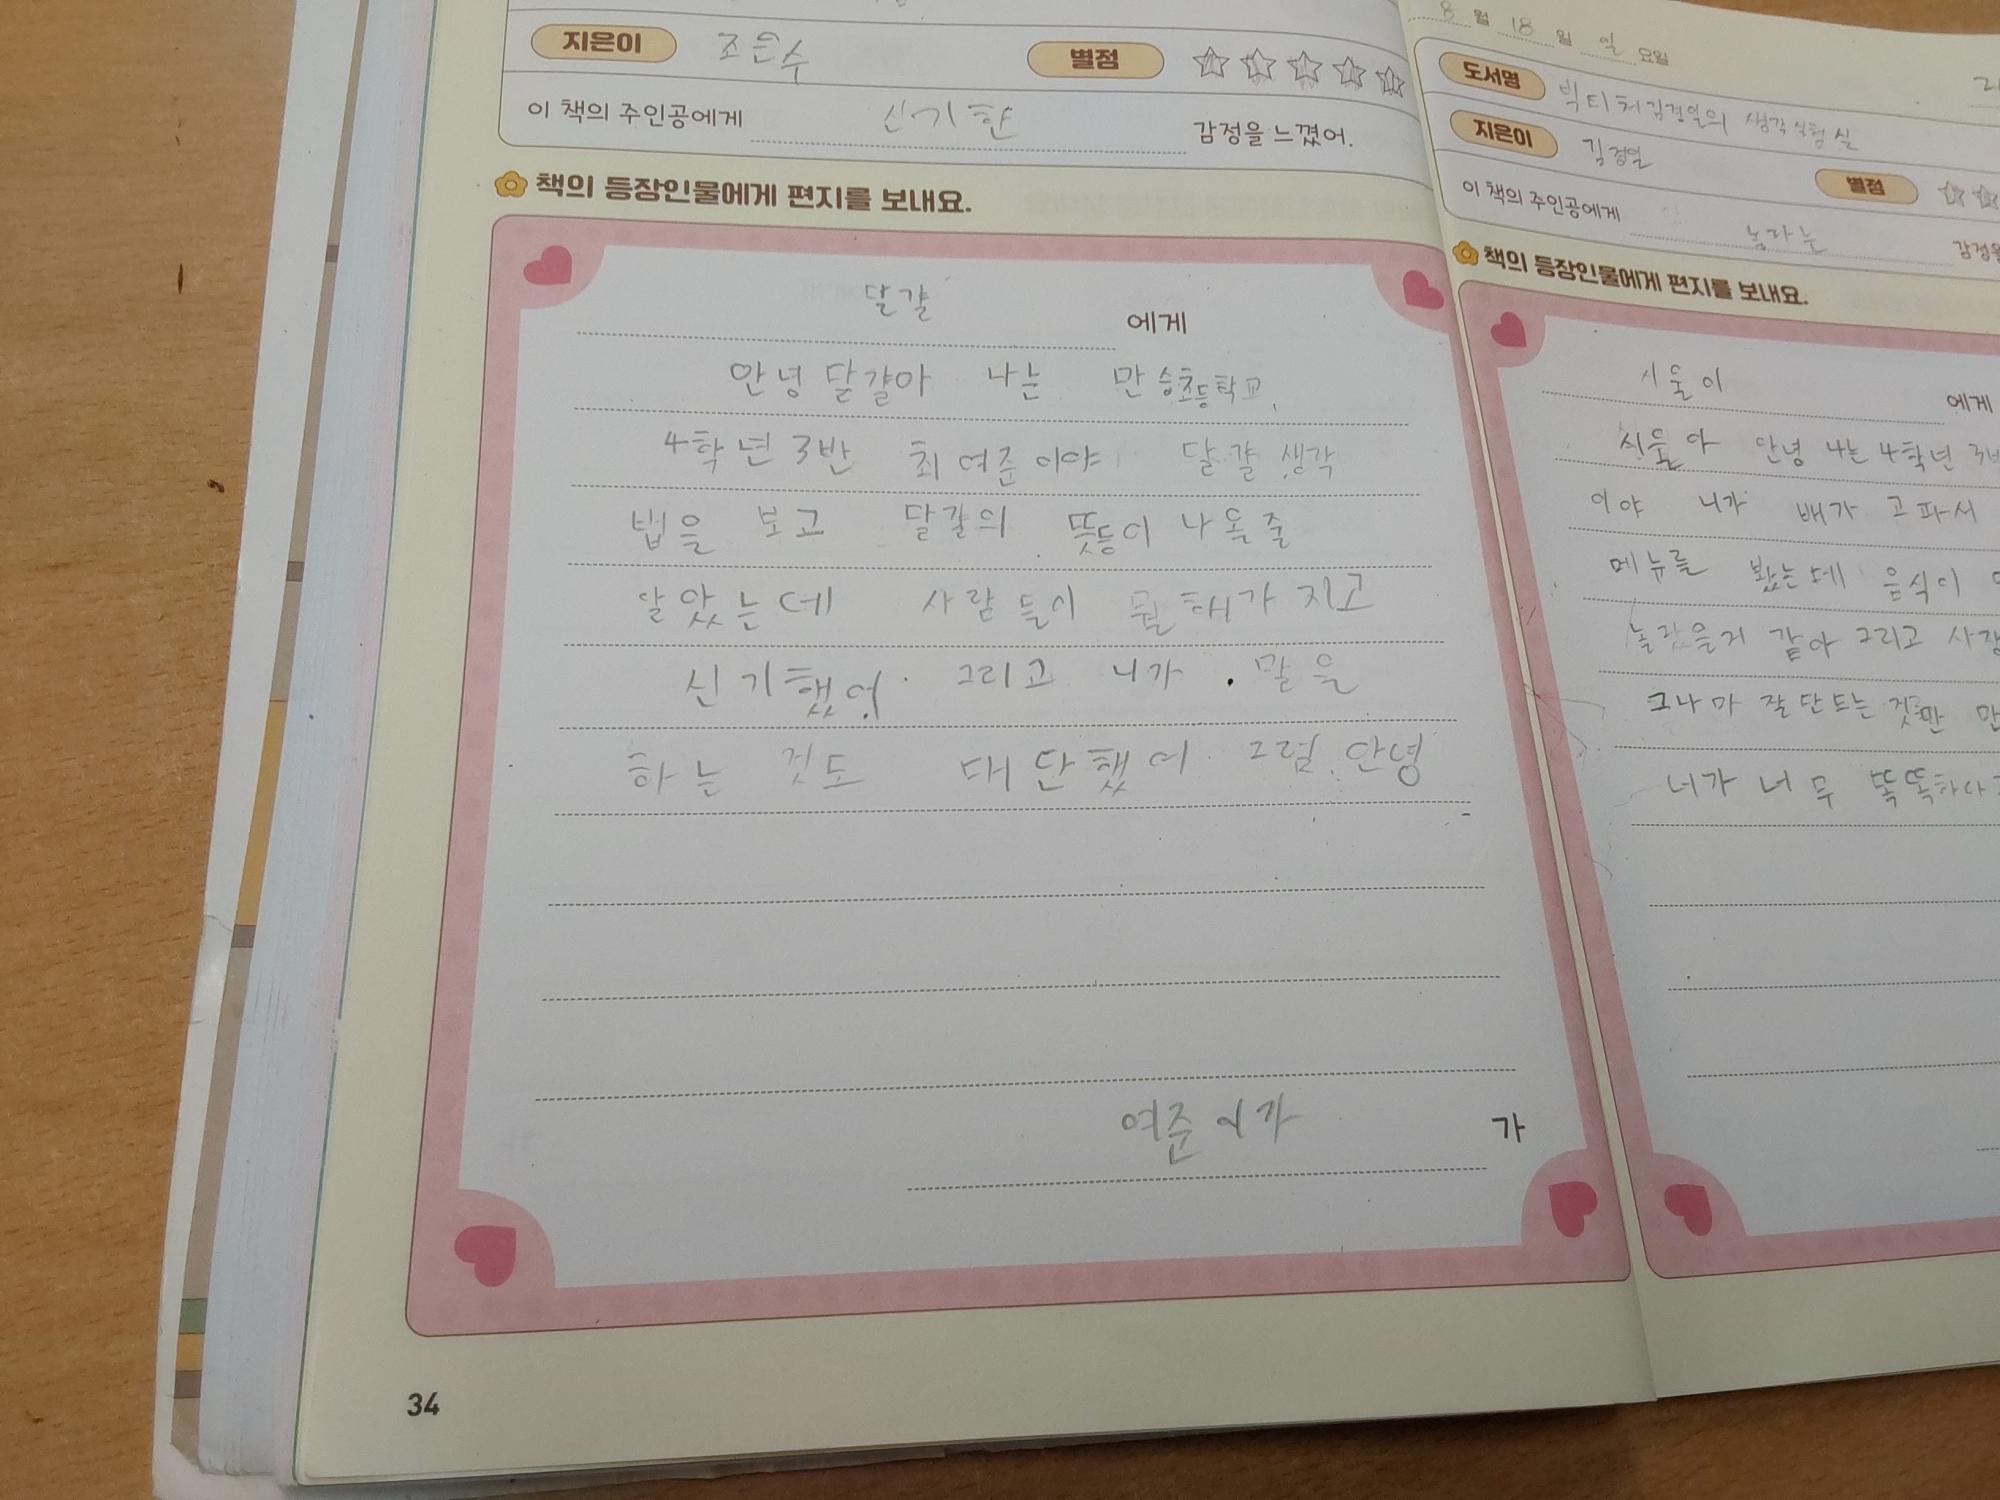 지은이 조은수 별점
이 책의 주인공에게 신기한 감정을 느꼈어.
책의 등장인물에게 편지를 보내요.
달걀 에게
안녕 달걀아 나는 만승초등학교
4학년 3반 최여준이야 달걀 생각
법을 보고 달걀의 뜻등이 나옥줄
알았는데 사람들이 뭘해가지고
신기했어. 그리고 니가 말을
하는 것도 대단했어 그럼 안녕
여준이가 가
34
8월 18일 일요일
도서명 빅티처김경일의 생각실험실
지은이 김경일
별점
이 책의 주인공에게 놀라는 감정을
책의 등장인물에게 편지를 보내요.
시울이 에게
시울아 안녕 나는 4학년
이야 니가 배가 고파서
메뉴를 봤는데 음식이
놀랐을거 같아 그리고
그나마 잘 만드는 것만
너가 너무 똑똑하다